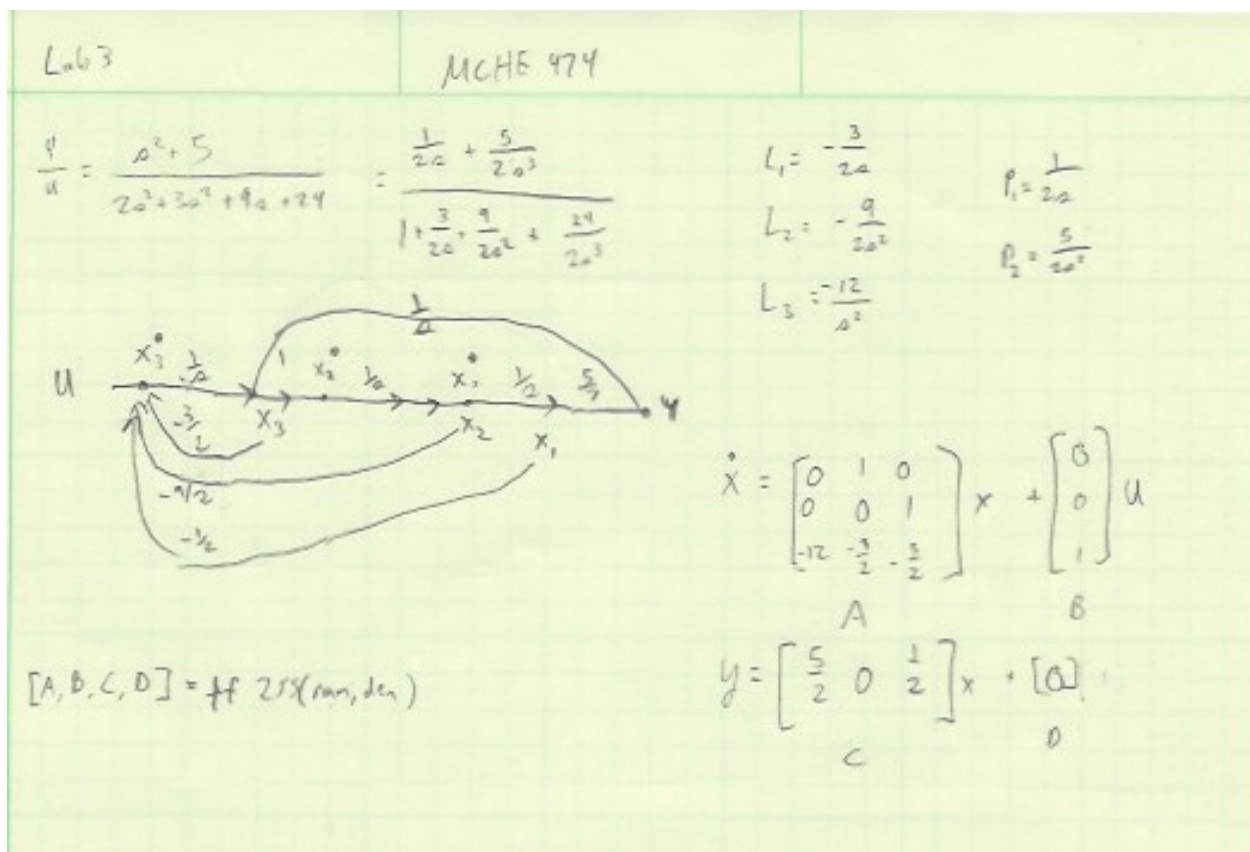 Lab 3
MCHE 474
Y/u = (s²+5)/(2s³+3s²+9s+24) = (1/2s + 5/2s³)/(1+3/2s+9/2s²+24/2s³)
L₁ = -3/2s
L₂ = -9/2s²
L₃ = -12/s²
P₁ = 1/2s
P₂ = 5/2s²
U ẋ₃ 1/s 1 ẋ₂ 1/s ẋ₁ 1/s 5/2 Y
x₃ x₂ x₁
-3/2
-9/2
ẋ = [0 1 0; 0 0 1; -12 -9/2 -3/2] x + [0; 0; 1] u
A B
y = [5/2 0 1/2] x + [0]
C D
[A, B, C, D] = tf 2ss(num, den)